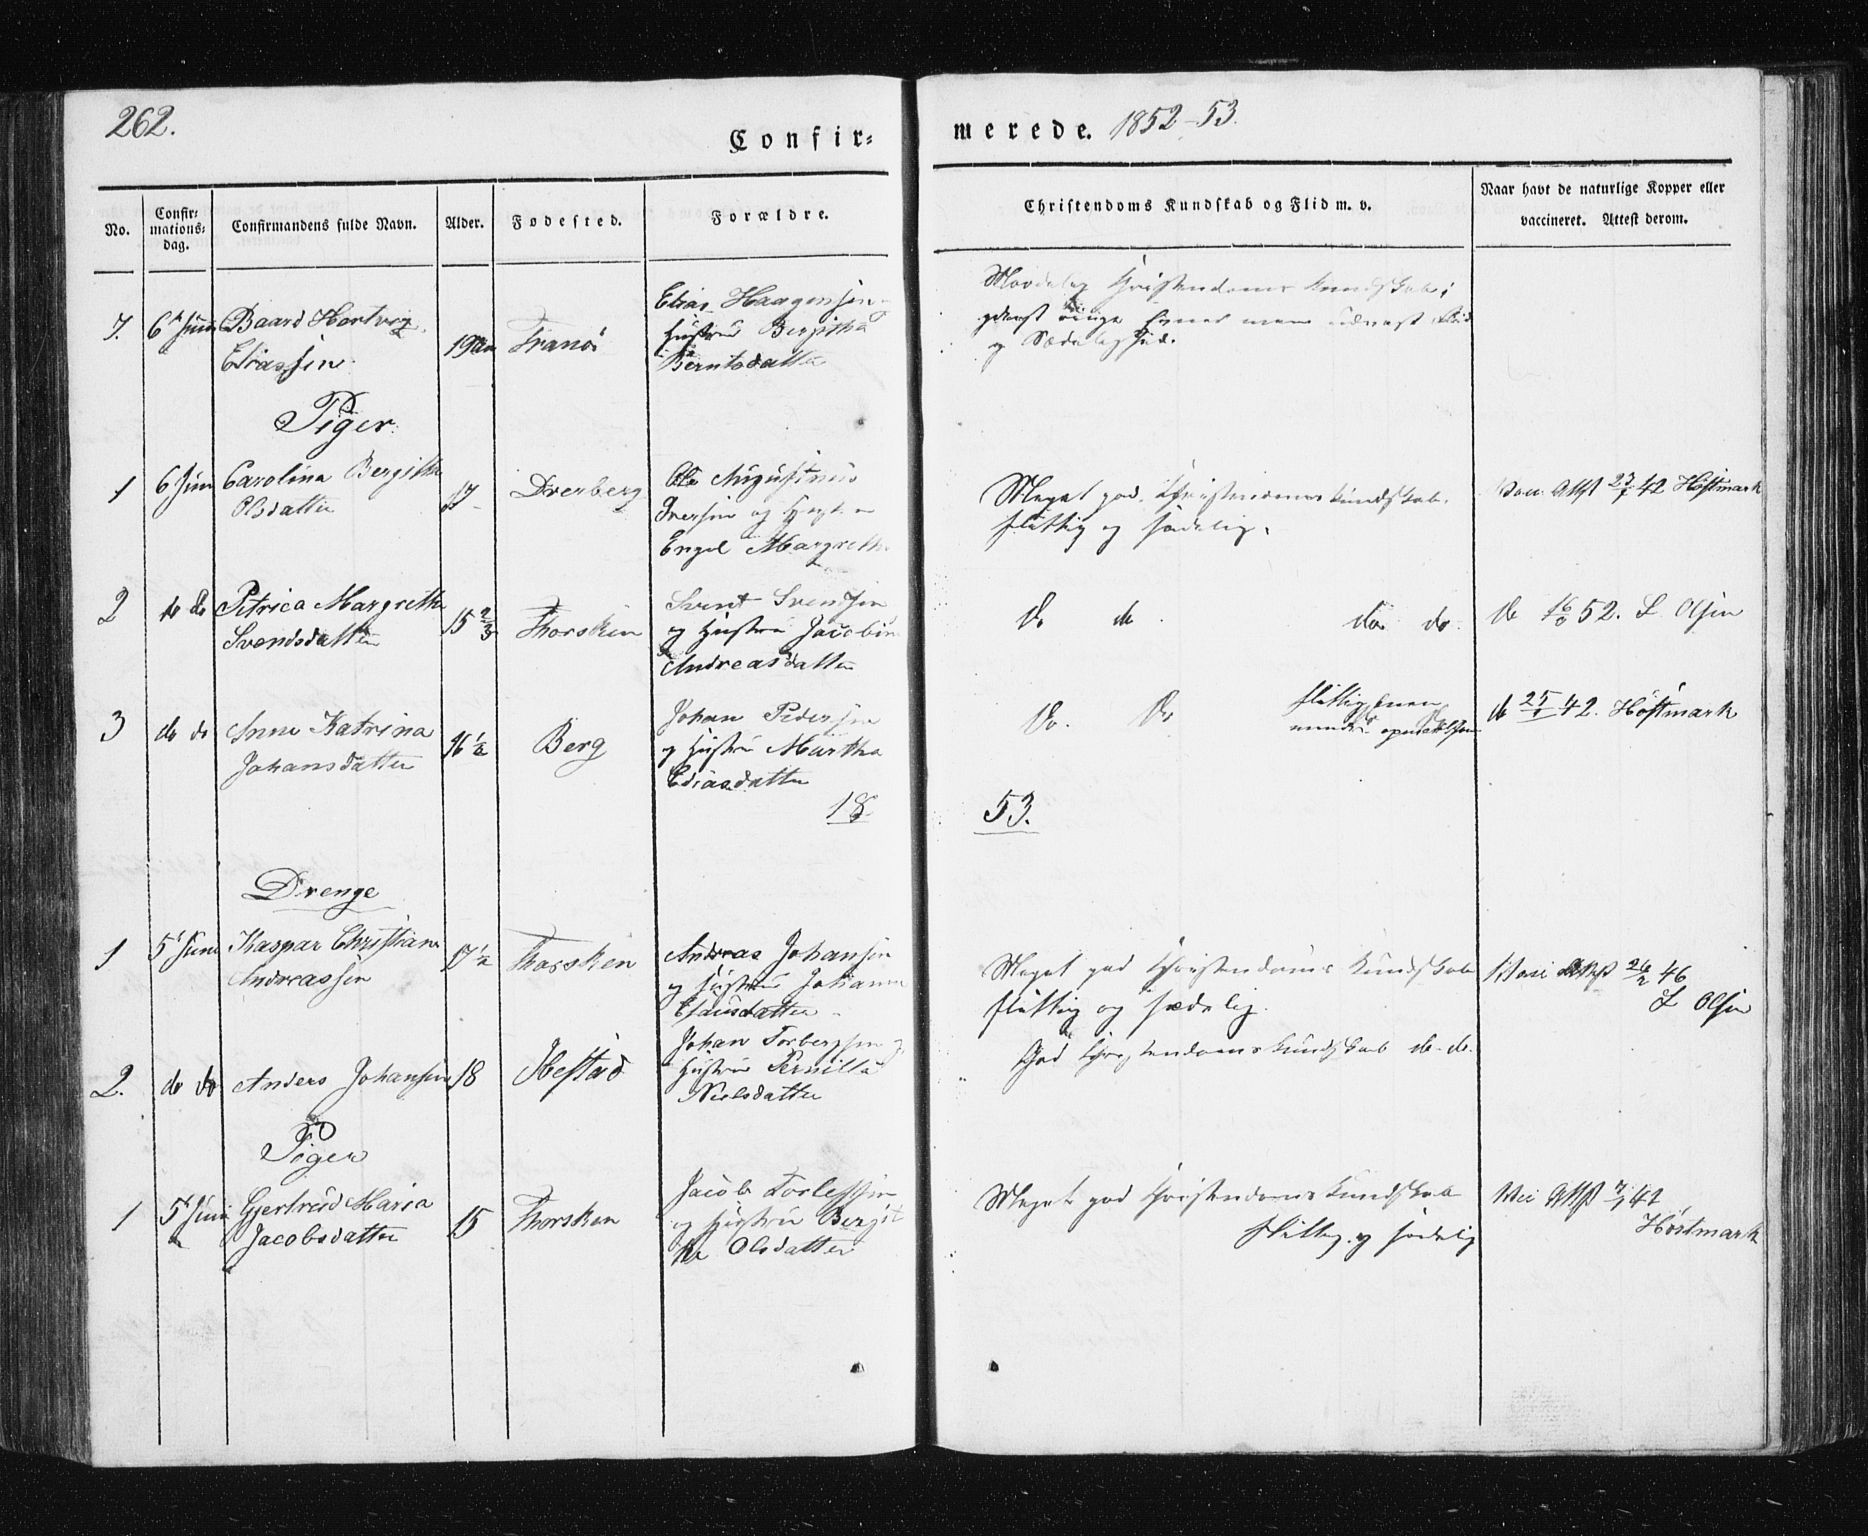 262.
Confir-
merede. 1852-53.
No.
Confir-
mations-
dag.
Confirmandens fulde Navn.
Alder.
Fødested.
Forældre.
Christendoms Kundskab og Flid m. v.
Naar havt de naturlige Kopper eller
vaccineret. Attest derom.
7. 6 Juni Baard Hartvig
Eliassen
19 Tranøi
Elias Haagensen
Hustru Bergitha
Berntsdatter
Christendoms Kundskab;
ringe Evner men udvist Flid
og Sædelighed.
Piger
1 6 Juni Carolina Bergitha
Olsdatter
17 Dverberg
Ole Augustinus
Iversen og Hust
Engel Margretha
Meget god Christendoms Kundskab.
flittig og sædelig.
Vac. Attst 23/7 42 Høstmark
2 do do Petrica Margretha
Svendsdatter
15 2/3 Thorsken
Svent Svendsen
og Hustru Jacobine
Andreasdatter
Do do do do.
do 52. L Olsen
3 do do Anne Katrina
Johansdatter
16 1/2 Berg
Johan Pedersen
og Hustru Martha
Eliasdatter
Do. Do flittig, men
mindre
do 25/1 42. Høstmark
18
53.
Drenge
1 5 Juni Kaspar Christian
Andreassen
17 1/2 Thorsken
Andreas Johansen
og Hustru Johanna
Esaiasdatter
Meget god Christendoms Kundskab
flittig og sædelig.
Vac Attst 26/2 46
L Olsen
2. do do Anders Johansen 18 Ibestad
Johan Torbergsen og
Hustru Pernilla
Nielsdatter
God Christendomskundskab do-do.
Piger
1 5 Juni Gjertrud Maria
Jacobsdatter
15 Thorsken
Jacob Torlefsen
og Hustru Bergit
he Olsdatter
Meget god Christendoms Kundskab
flittig og sædelig
Attst 41
Høstmark